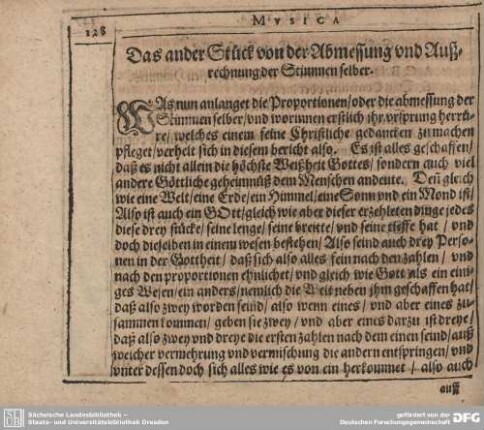 MVSICA
128
Das ander Stück von der Abmessung vnd Auß-
rechnung der Stimmen selber.
WAs nun anlanget die Proportionen/oder die abmessung der
Stimmen selber/vnd worinnen erstlich ihr vrsprung herrüre
re/welches einem feine Christliche gedancken zu machen
pfleget/verhelt sich in diesem bericht also. Es ist alles geschaffen/
daß es nicht allein die höchste Weißheit Gottes/sondern auch viel
andere Göttliche geheimnüß dem Menschen andeute. Deñ gleich
wie eine Welt/eine Erde/ein Himmel/eine Sonn vnd ein Mond ist/
Also ist auch ein GOtt/gleich wie aber dieser erzehleten dinge jedes
diese drey stücke/seine lenge/seine breite/vnd seine tieffe hat/vnd
doch dieselben in einem wesen bestehen/Also seind auch drey Perso-
nen in der Gottheit/daß sich also alles fein nach den zahlen/vnd
nach den proportionen ehnlichet/vnd gleich wie Gott als ein eini-
ges Wesen/ein anders/nemlich die Welt neben ihm geschaffen hat/
daß also zwey worden seind/also wenn eines/vnd aber eines zu-
sammen kommen/geben sie zwey/vnd aber eines darzu ist dreye/
daß also zwey vnd dreye die ersten zahlen nach dem einen seind/auß
welcher vermehrung vnd vermischung die andern entspringen/vnd
vnter dessen doch sich alles wie es von ein herkommet/also auch
auff
Sächsische Landesbibliothek –
Staats- und Universitätsbibliothek Dresden
gefördert von der
Deutschen Forschungsgemeinschaft
DFG